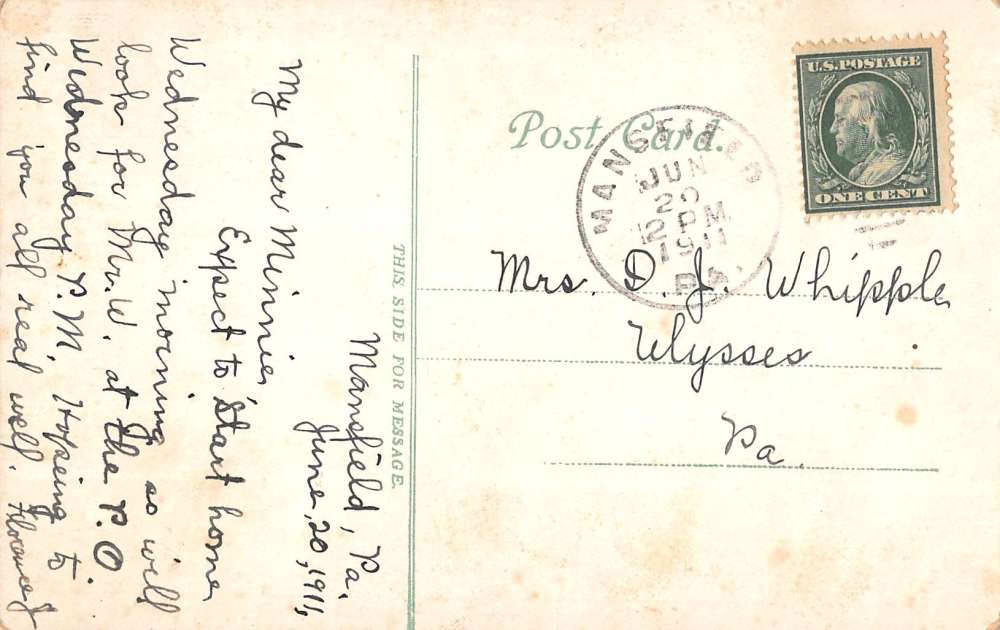 Mansfield, Pa.
June, 20, 1911,
My dear Minnie,
Expect to start home
Wednesday morning so will
look for Mr. W. at the P.O
Wednesday P.M, Hopeing to
find you all real well. Florence
THIS SIDE FOR MESSAGE.
Post Card.
MANSFIELD
JUN
20
2 PM
1911
PA.
U.S. POSTAGE
ONE CENT
Mrs. D. J. Whipple,
Ulysses
Pa.